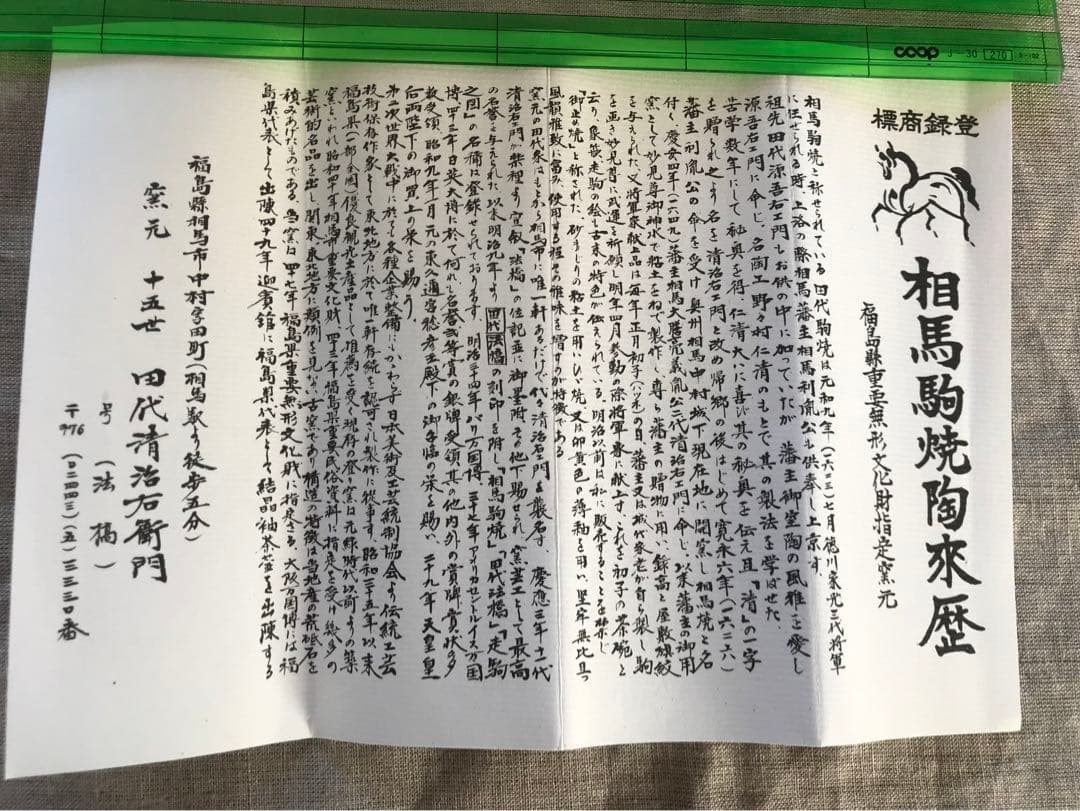 coop J-30 270
登録商標
相馬駒焼陶來歴
福島縣重要無形文化財指定窯元
相馬駒焼と称せられている田代駒焼は元和九年(一六二三)七月徳川家光三代将軍
に任せられる時、上洛の際相馬藩主相馬利胤公も供奉し上京す。
祖先田代源吾右エ門もお供の中に加っていたが 藩主御室陶の風雅を愛し
源吾右エ門に命じ、名陶工野々村仁清のもとで其の製法を学ばせた。
苦学数年にして秘奥を得、仁清大いに喜び其の秘奥を伝え且「清」の一字
を贈られ之より名を清治右エ門と改め帰郷の後はじめて寛永六年(一六二六)
藩主利胤公の命を受け奥州相馬中村城下現在地に開窯し相馬焼と名
付く、慶安四年(一六四九)藩主相馬大膳亮義胤公二代清治右エ門に命じ、以来藩主の御用
窯として妙見尊御神水で粘土をねて製作し、専ら藩主の贈物に用い、録高と屋敷、頒紋
を与えられた。又将軍家献上品は毎年正月初子(ハツネ)の日、藩主又は城代家老が自ら製し駒
を画き妙見尊に武運を祈願し明年四月参勤の際将軍家に献上す、これを初子の茶碗と
云う、象嵌走駒の絵も古来の特色が伝えられている。明治以前は私に販売することを禁じ
「御止め焼」と称された。砂まじりの粘土を用いひび焼、又は卵黄色の薄釉を用い、堅牢無比且つ
風韻雅致に富み、使用する程その雅味を増すのが特徴である。
窯元の田代家はもとから相馬市に唯一軒あるだけで、代々清治右エ門を襲名す。 慶應三年十一代
清治右エ門が禁裡より宣叙「法橋」の位記並に御墨附、その他下賜せられ 窯業工として最高
の名誉を与えられた。以来、明治九年より 田代法橋 の刻印を附し、「相馬駒焼」「田代法橋」「走駒
之図」の名称は登録せられております。 明治三十四年パリ万国博、三十七年アメリカセントルイス万国
博、四十三年日英大博に於て何れも名誉弐等賞の銀牌受領、其の他内外の賞牌賞状多
数受領、昭和九年一月元の東久邇宮稔彦王殿下の御台臨の栄を賜い、二十九年天皇皇
后両陛下の御買上の栄を賜う。
第二次世界大戦中に於ても各種企業整備にかかわらず日本美術及工芸統制協会より伝統工芸
技術保存作家として東北地方に於て唯一軒存続を認可され製作に従事す。昭和二十五年以来
福島県(一部全国)優良観光土産品として推薦を受く、現存の登り窯は元禄時代以前よりの築
窯といわれ昭和四十年相馬市重要文化財、四十三年福島県重要民俗資料に指定を受け、幾多の
芸術的名品を出し、関東、東北地方に類例を見ない古窯であり構造の特徴は当地産の荒砥石を
積みあげたものである。当窯は四十七年、福島県重要無形文化財に指定さる。大阪万国博には福
島県代表として出陳、四十九年迎賓館に福島県代表として結晶釉茶壷を出陳する
福島縣相馬市中村字田町(相馬驛より徒歩五分)
窯元 十五世 田代清治右衛門
号(法橋)
〒976(〇二四四三)(五)三三三〇番